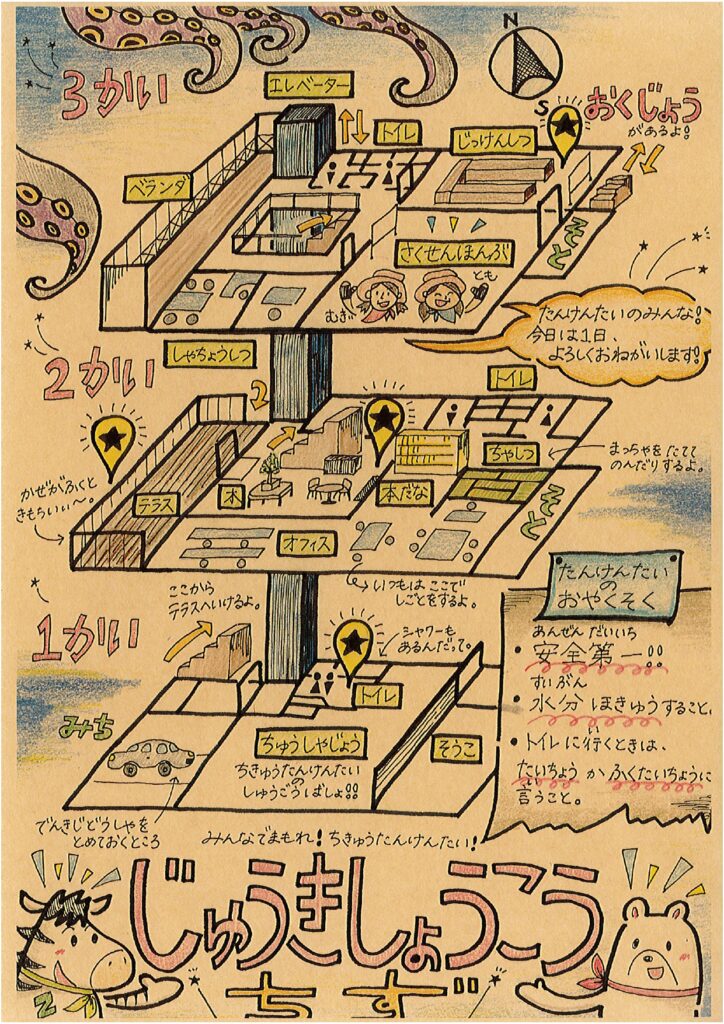 N
S
3かい
エレベーター
トイレ
じっけんしつ
おくじょう
があるよ!
ベランダ
さくせんほんぶ
むぎ
とも
そと
たんけんたいのみんな!
今日は1日、
よろしくおねがいします!
しゃちょうしつ
2かい
2
トイレ
ちゃしつ
まっちゃをたてて
のんだりするよ。
かぜがふくと
きもちいい〜。
テラス
木
本だな
そと
オフィス
いつもはここで
しごとをするよ。
ここから
テラスへいけるよ。
1かい
シャワーも
あるんだって。
トイレ
みち
ちゅうしゃじょう
ちきゅうたんけんたい
の
しゅうごうばしょ!!
そうこ
でんきじどうしゃを
とめておくところ
たんけんたい
の
おやくそく
あんぜんだいいち
・安全第一!!
すいぶん
・水分ほきゅうすること。
い
・トイレに行くときは、
たいちょうかふくたいちょうに
い
言うこと。
みんなでまもれ!ちきゅうたんけんたい!
じゅうきしょうこう
ちず
Z